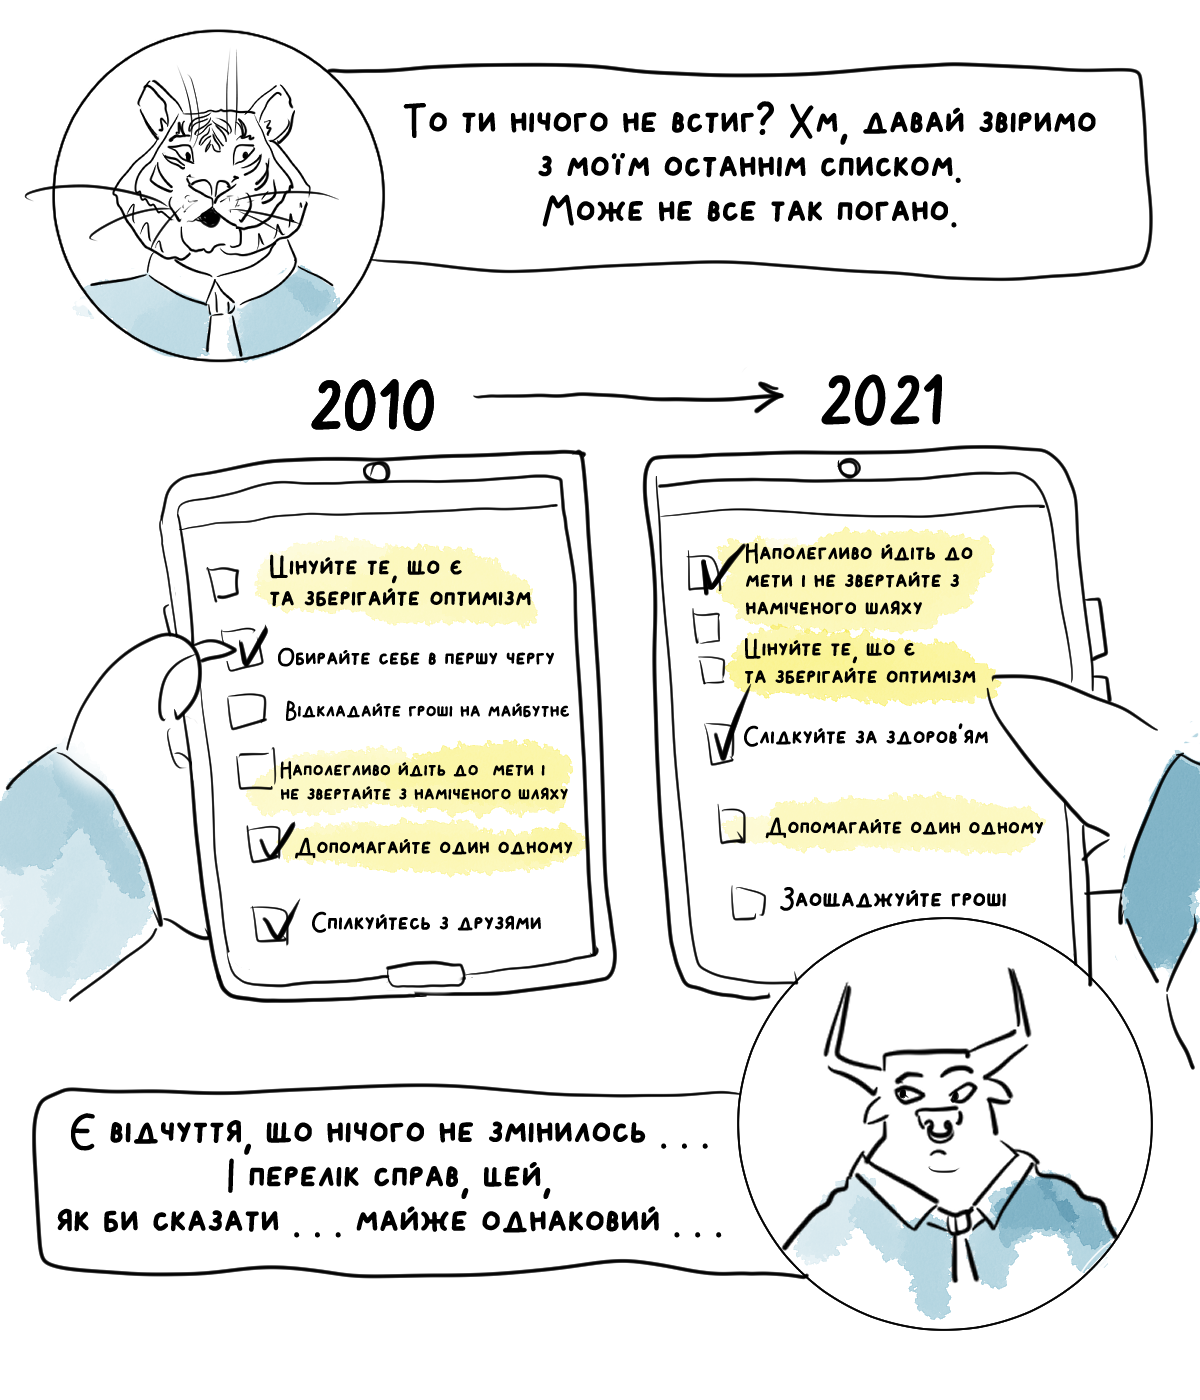 То ти нічого не встиг? Хм, давай звіримо
з моїм останнім списком.
Може не все так погано.
2010
2021
Цінуйте те, що є
та зберігайте оптимізм
Обирайте себе в першу чергу
Відкладайте гроші на майбутнє
Наполегливо йдіть до мети і
не звертайте з наміченого шляху
Допомагайте один одному
Спілкуйтесь з друзями
Наполегливо йдіть до
мети і не звертайте з
наміченого шляху
Цінуйте те, що є
та зберігайте оптимізм
Слідкуйте за здоров'ям
Допомагайте один одному
Заощаджуйте гроші
Є відчуття, що нічого не змінилось ...
І перелік справ, цей,
як би сказати ... майже однаковий ...